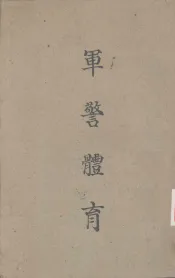 軍警體育